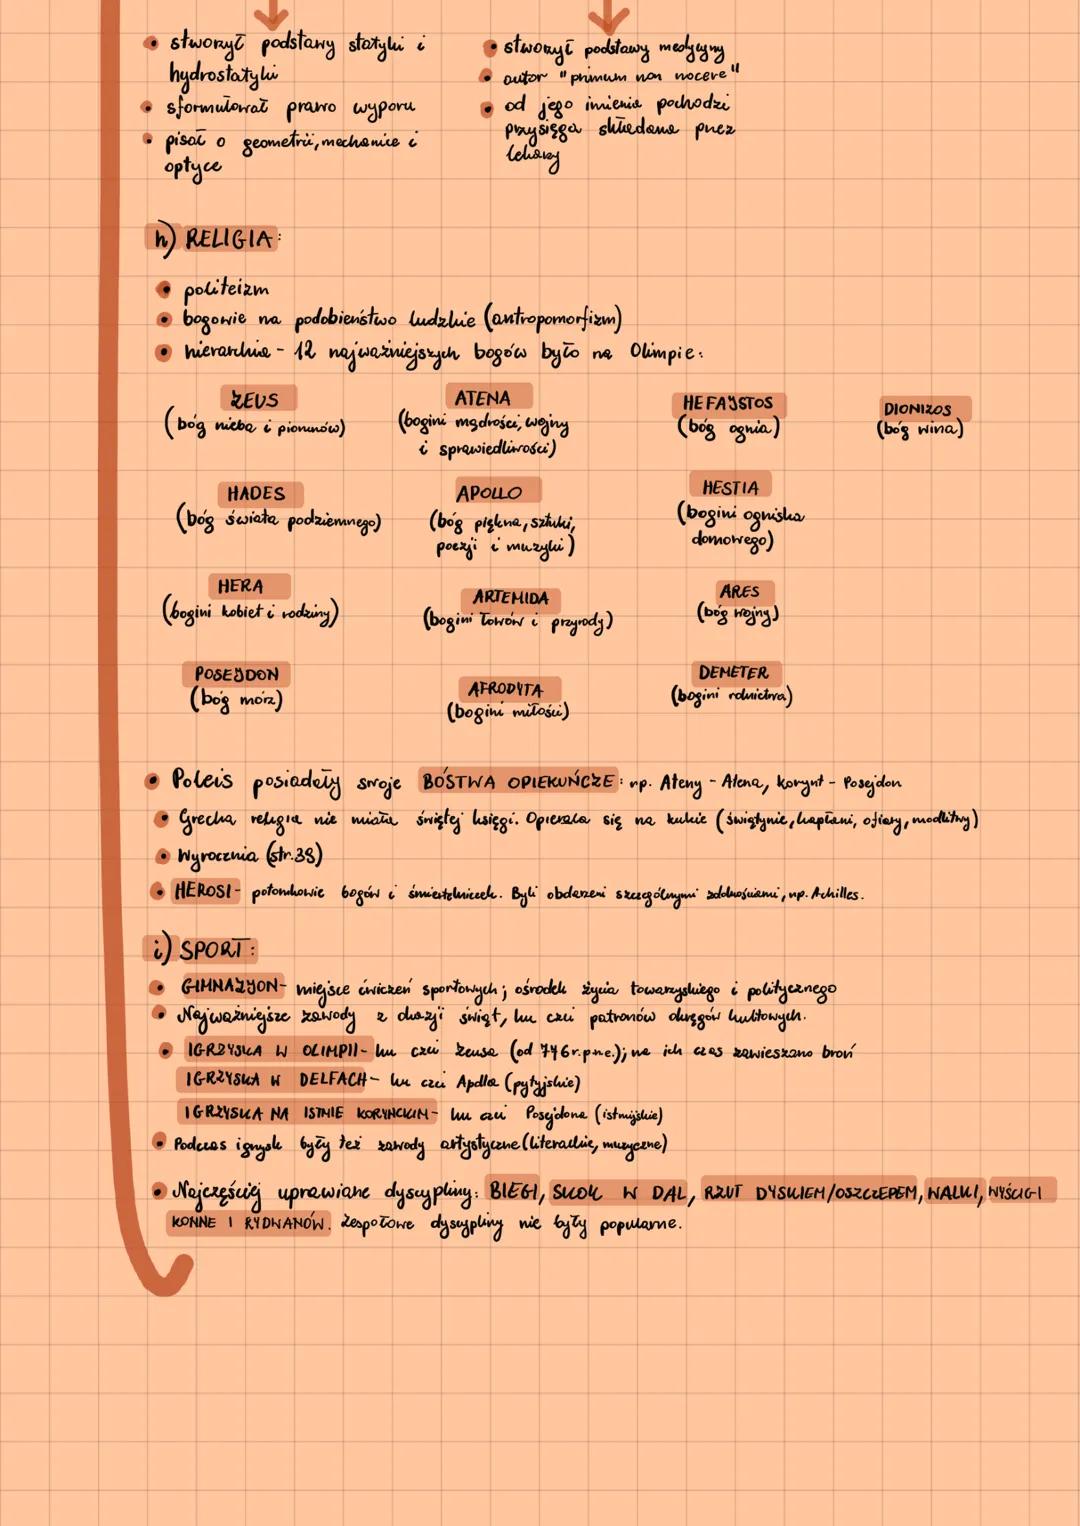 • stworzył podstawy statyki i
hydrostatyki
• sformułował prawo wyporu
• pisał o geometrii, mechanice i
optyce
• stworzył podstawy medycyny
• autor "primum non nocere"
• od jego imienia pochodzi
przysięga składana przez
lekarzy
h) RELIGIA:
• politeizm
• bogowie na podobieństwo ludzkie (antropomorfizm)
• hierarchia - 12 najważniejszych bogów było na Olimpie:
ZEUS
(bóg nieba i piorunów)
ATENA
(bogini mądrości, wojny
i sprawiedliwości)
HEFAJSTOS
(bóg ognia)
DIONIZOS
(bóg wina)
HADES
(bóg świata podziemnego)
APOLLO
(bóg piękna, sztuki,
poezji i muzyki)
HESTIA
(bogini ogniska
domowego)
HERA
(bogini kobiet i rodziny)
ARTEMIDA
(bogini łowów i przyrody)
ARES
(bóg wojny)
POSEJDON
(bóg mórz)
AFRODYTA
(bogini miłości)
DEMETER
(bogini rolnictwa)
• Poleis posiadały swoje BÓSTWA OPIEKUŃCZE: np. Ateny - Atena, Korynt - Posejdon
• Grecka religia nie miała świętej księgi. Opierała się na kulcie (świątynie, kapłani, ofiary, modlitwy)
• Wyrocznia (str.38)
• HEROSI - potomkowie bogów i śmiertelniczek. Byli obdarzeni szczególnymi zdolnościami, np. Achilles.
i) SPORT:
• GIMNAZJON - miejsce ćwiczeń sportowych; ośrodek życia towarzyskiego i politycznego
• Najważniejsze zawody z okazji świąt, ku czci patronów okręgów kultowych.
• IGRZYSKA W OLIMPII - ku czci Zeusa (od 776r.p.n.e.); na ich czas zawieszano broń
IGRZYSKA W DELFACH - ku czci Apolla (pytyjskie)
IGRZYSKA NA ISTMIE KORYNCKIM - ku czci Posejdona (istmijskie)
• Podczas igrzysk były też zawody artystyczne (literackie, muzyczne)
• Najczęściej uprawiane dyscypliny: BIEGI, SKOK W DAL, RZUT DYSKIEM/OSZCZEPEM, WALKI, WYŚCIGI
KONNE I RYDWANÓW. Zespołowe dyscypliny nie były popularne.